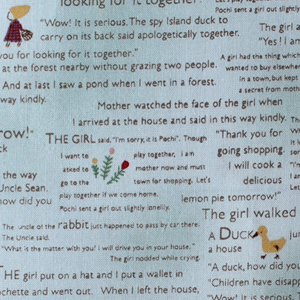 looking for it together."
The girl
"Yes! I am
"Wow! It is serious. The spy Island duck to
carry on its back said apologetically together.
Pochi sent a girl out slightly
you for looking for it together."
at the forest nearby without grazing two people.
A girl had the thing which
wanted to buy elsewhere
in a town, but kept
a secret from mother
And at last I saw a pond when I went in a forest.
way kindly.
Mother watched the face of the girl when
I arrived at the house and said in this way kindly.
THE GIRL said, "I'm sorry, it is Pochi". Though
I want to play together, i am
asked to mother now and must
go to the town for shopping. Let's
play together if we come home.
Pochi sent a girl out slightly lonelily.
"Thank you for
going shopping.
I will cook a
delicious
lemon pie tomorrow!"
the way
Uncle Sean.
how did you
The uncle of the rabbit just happened to pass by car there.
The Uncle said.
"What is the matter with you? I will drive you in your house."
The girl nodded while crying.
The girl walked
A DUCK
a house
"A duck, how did you
"Children have disap
"Wow! it is serious.
THE girl put on a hat and I put a wallet in
ochette and went out. When I left the house,